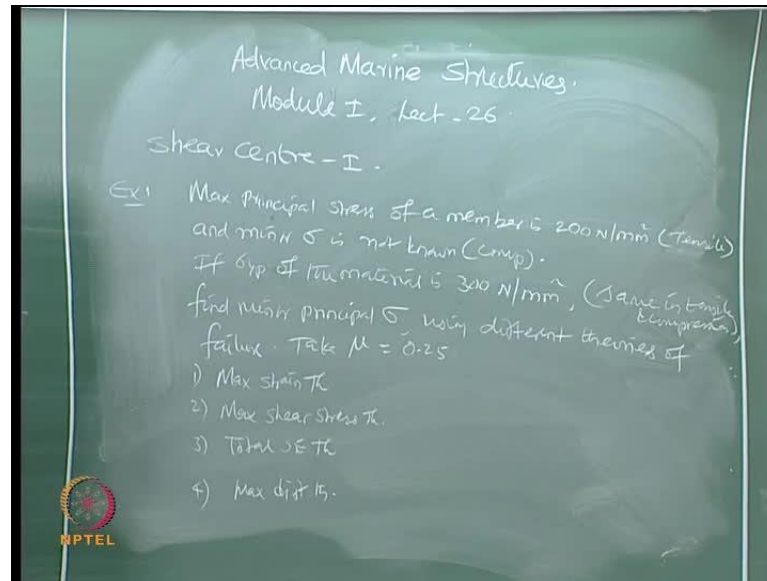 Advanced Marine Structures.
Module I, Lect - 26
Shear Centre - I.
Ex1 Max Principal stress of a member is 200 N/mm² (Tensile)
and minr σ is not known (comp).
If σyp of the material is 300 N/mm², (same in tensile
& compression),
find minr principal σ using different theories of
failure. Take μ = 0.25
1) Max strain Th
2) Max shear stress Th.
3) Total SE Th
4) Max dist Th.
NPTEL